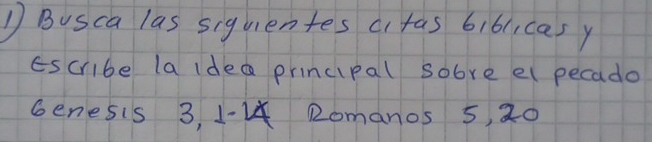 1) Busca las siguientes citas biblicas y
Escribe la idea principal sobre el pecado
Genesis 3, 1-14 Romanos 5, 20